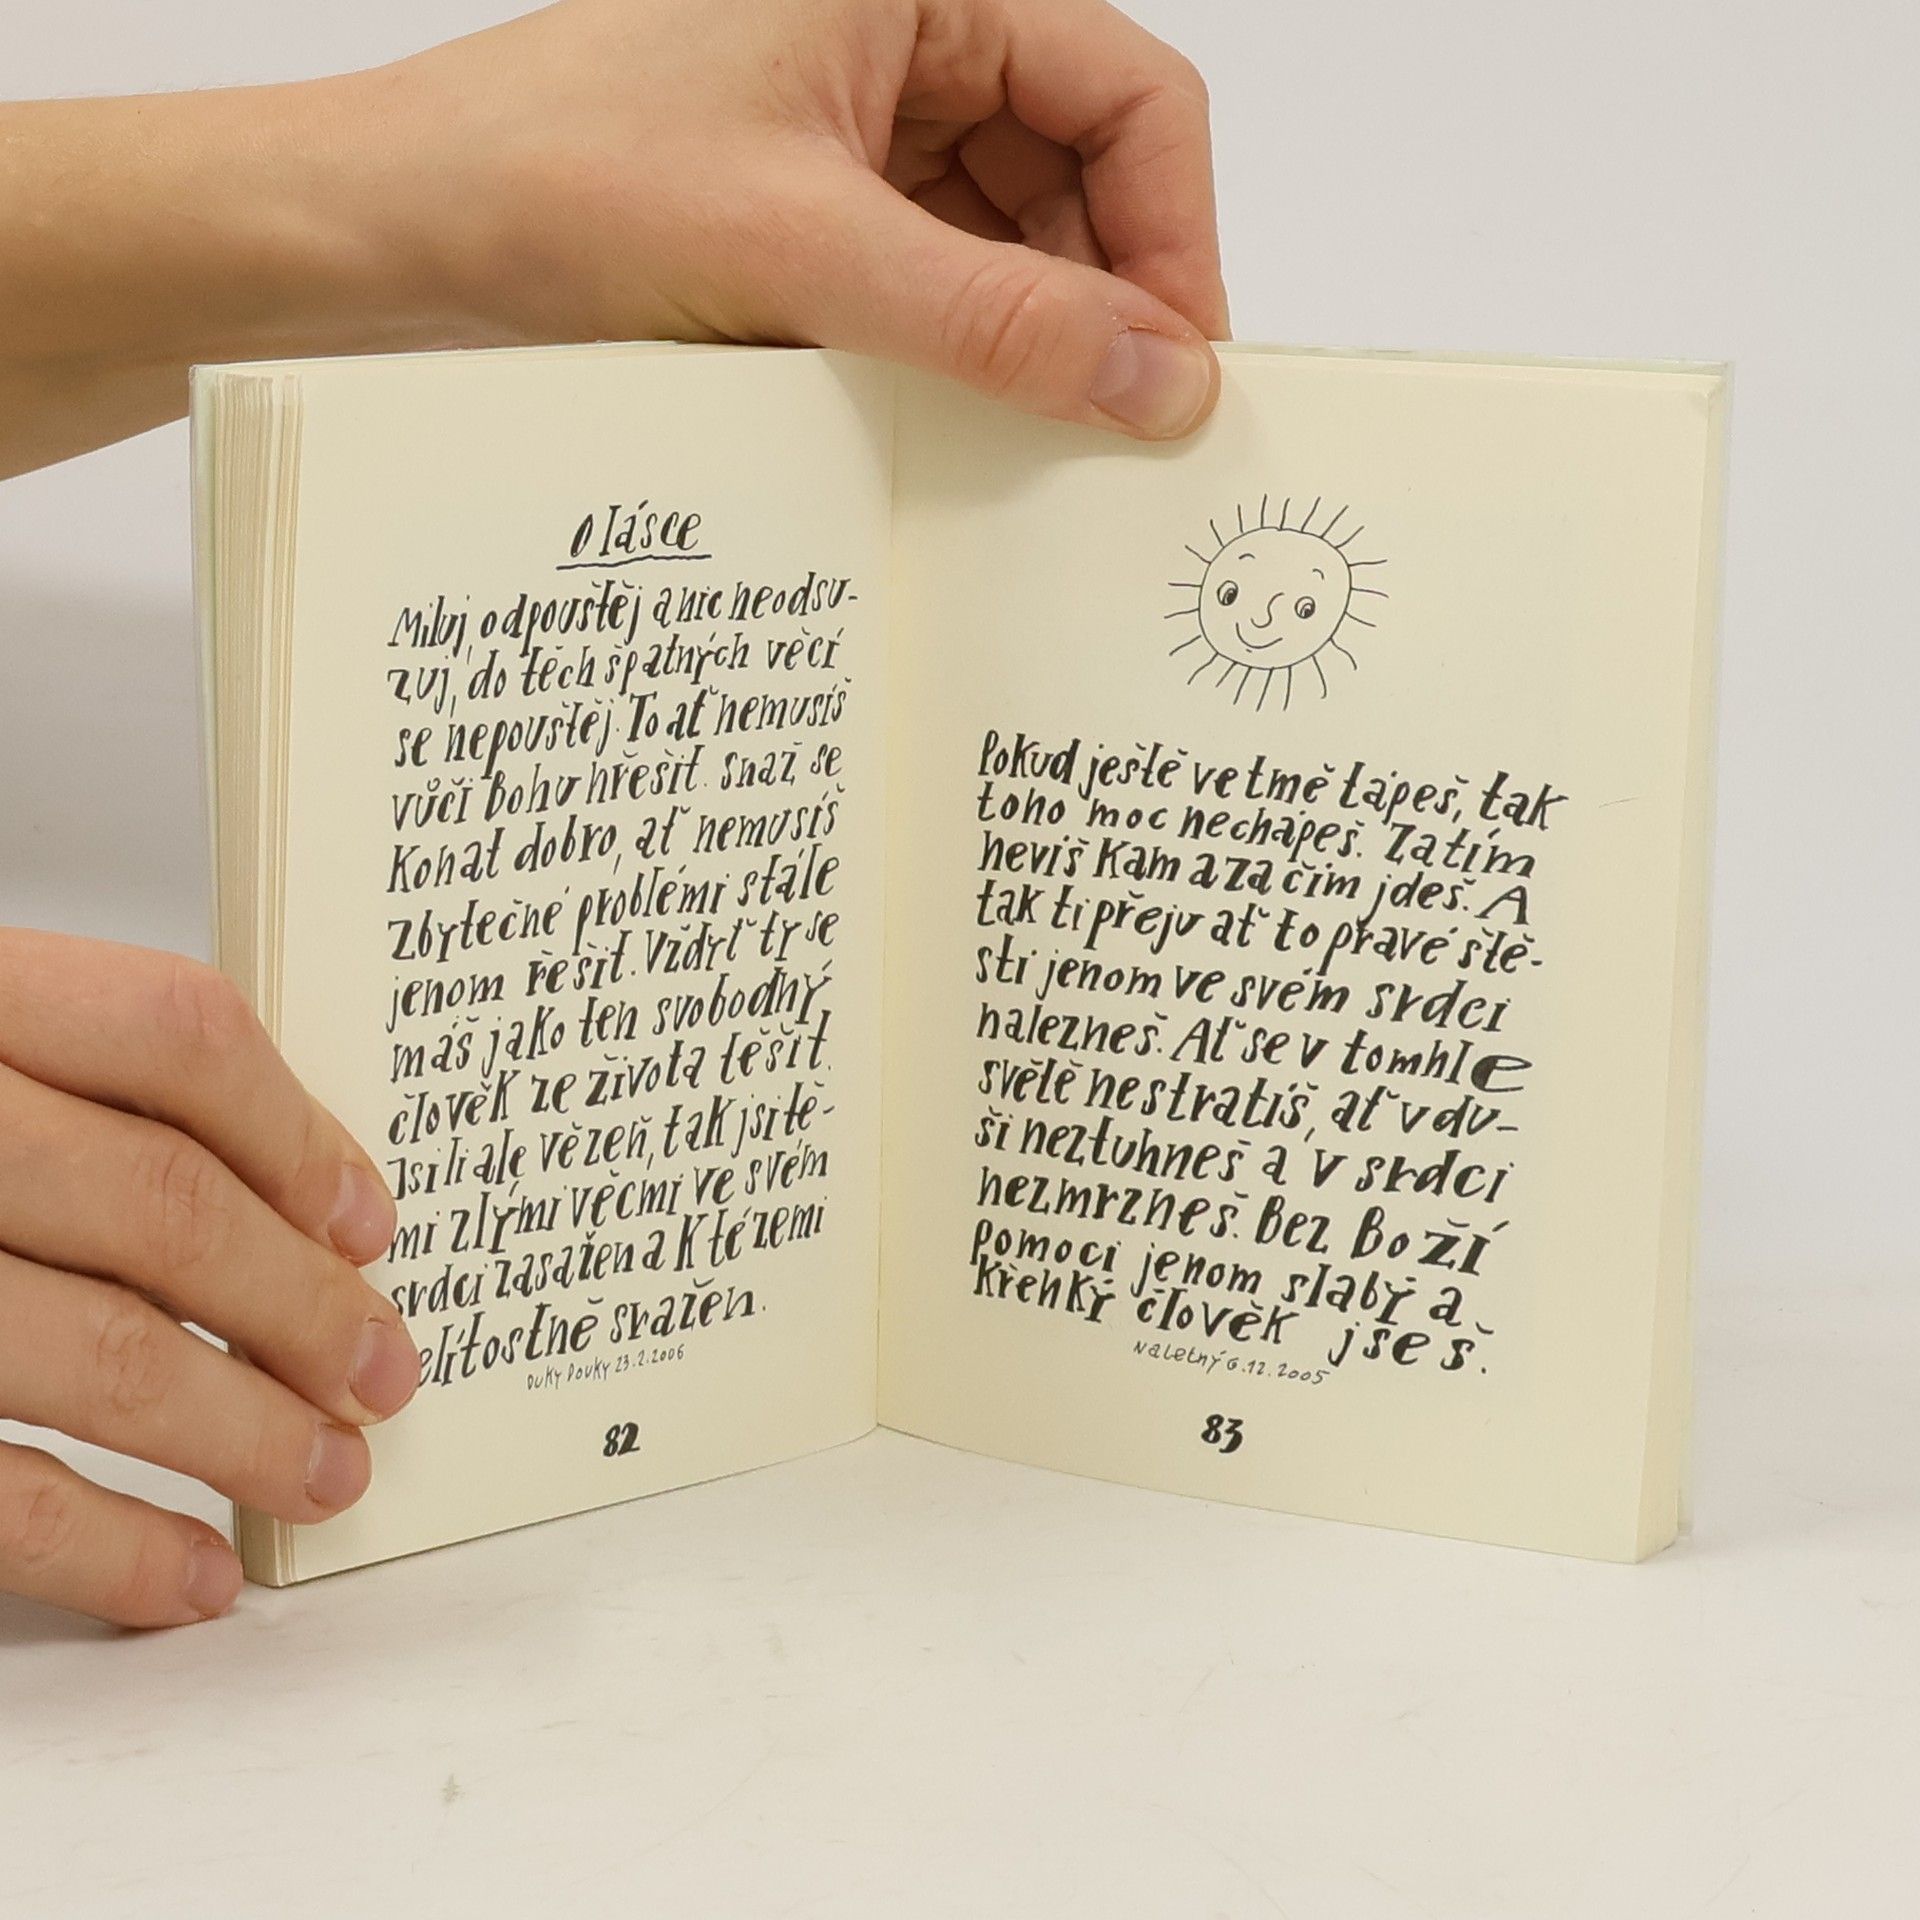 O lásce
Miluj, odpouštěj a nic neodsu-
zuj, do těch špatných věcí
se nepouštěj. To ať nemusíš
vůči Bohu hřešit. Snaž se
Konat dobro, ať nemusíš
zbytečné problémi stále
jenom řešit. Vždyť ty se
máš jako ten svobodný
člověk ze života těšit.
Jsi li ale vězeň, tak jsi tě-
mi zlými věcmi ve svém
srdci zasažen a K té zemi
elítostně sražen.
Duky Douky 23.2.2006
82
Pokud ještě ve tmě tápeš, tak
toho moc nechápeš. Zatím
nevíš Kam a za čim jdeš. A
tak ti přeju ať to pravé ště-
sti jenom ve svém srdci
nalezneš. Ať se v tomhle
světě nestratíš, ať v du-
ši neztuhneš a v srdci
nezmrzneš. Bez Boží
pomoci jenom slabý a
Křehký člověk jseš.
Naletný 6.12.2005
83